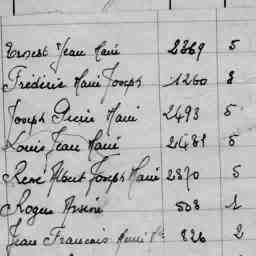 Ernest Jean Marie 2369 5
Frédéric Marie Joseph 1260 3
Joseph Pierre Marie 2493 5
Louis Jean Marie 2481 5
René Albert Joseph Marie 2870 5
Roger Arsène 508 1
Jean François 826 2